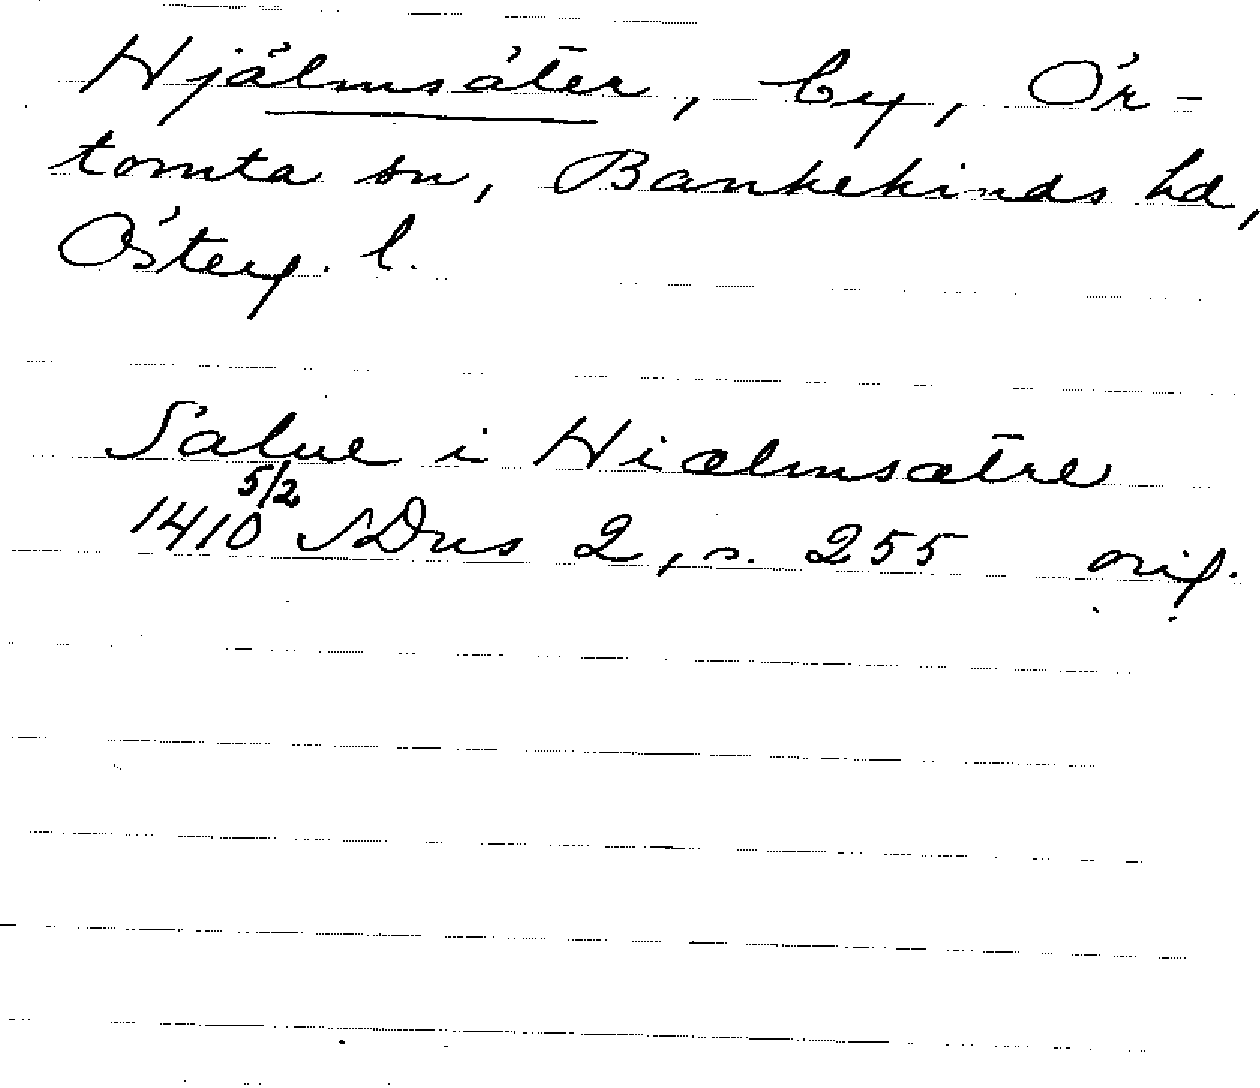 Hjälmsäter, by, Ör-
tomta sn, Bankekinds hd,
Österg. l.
Salue i Hiælmsætre
1410 5/2 SDns 2, s. 255 orig.